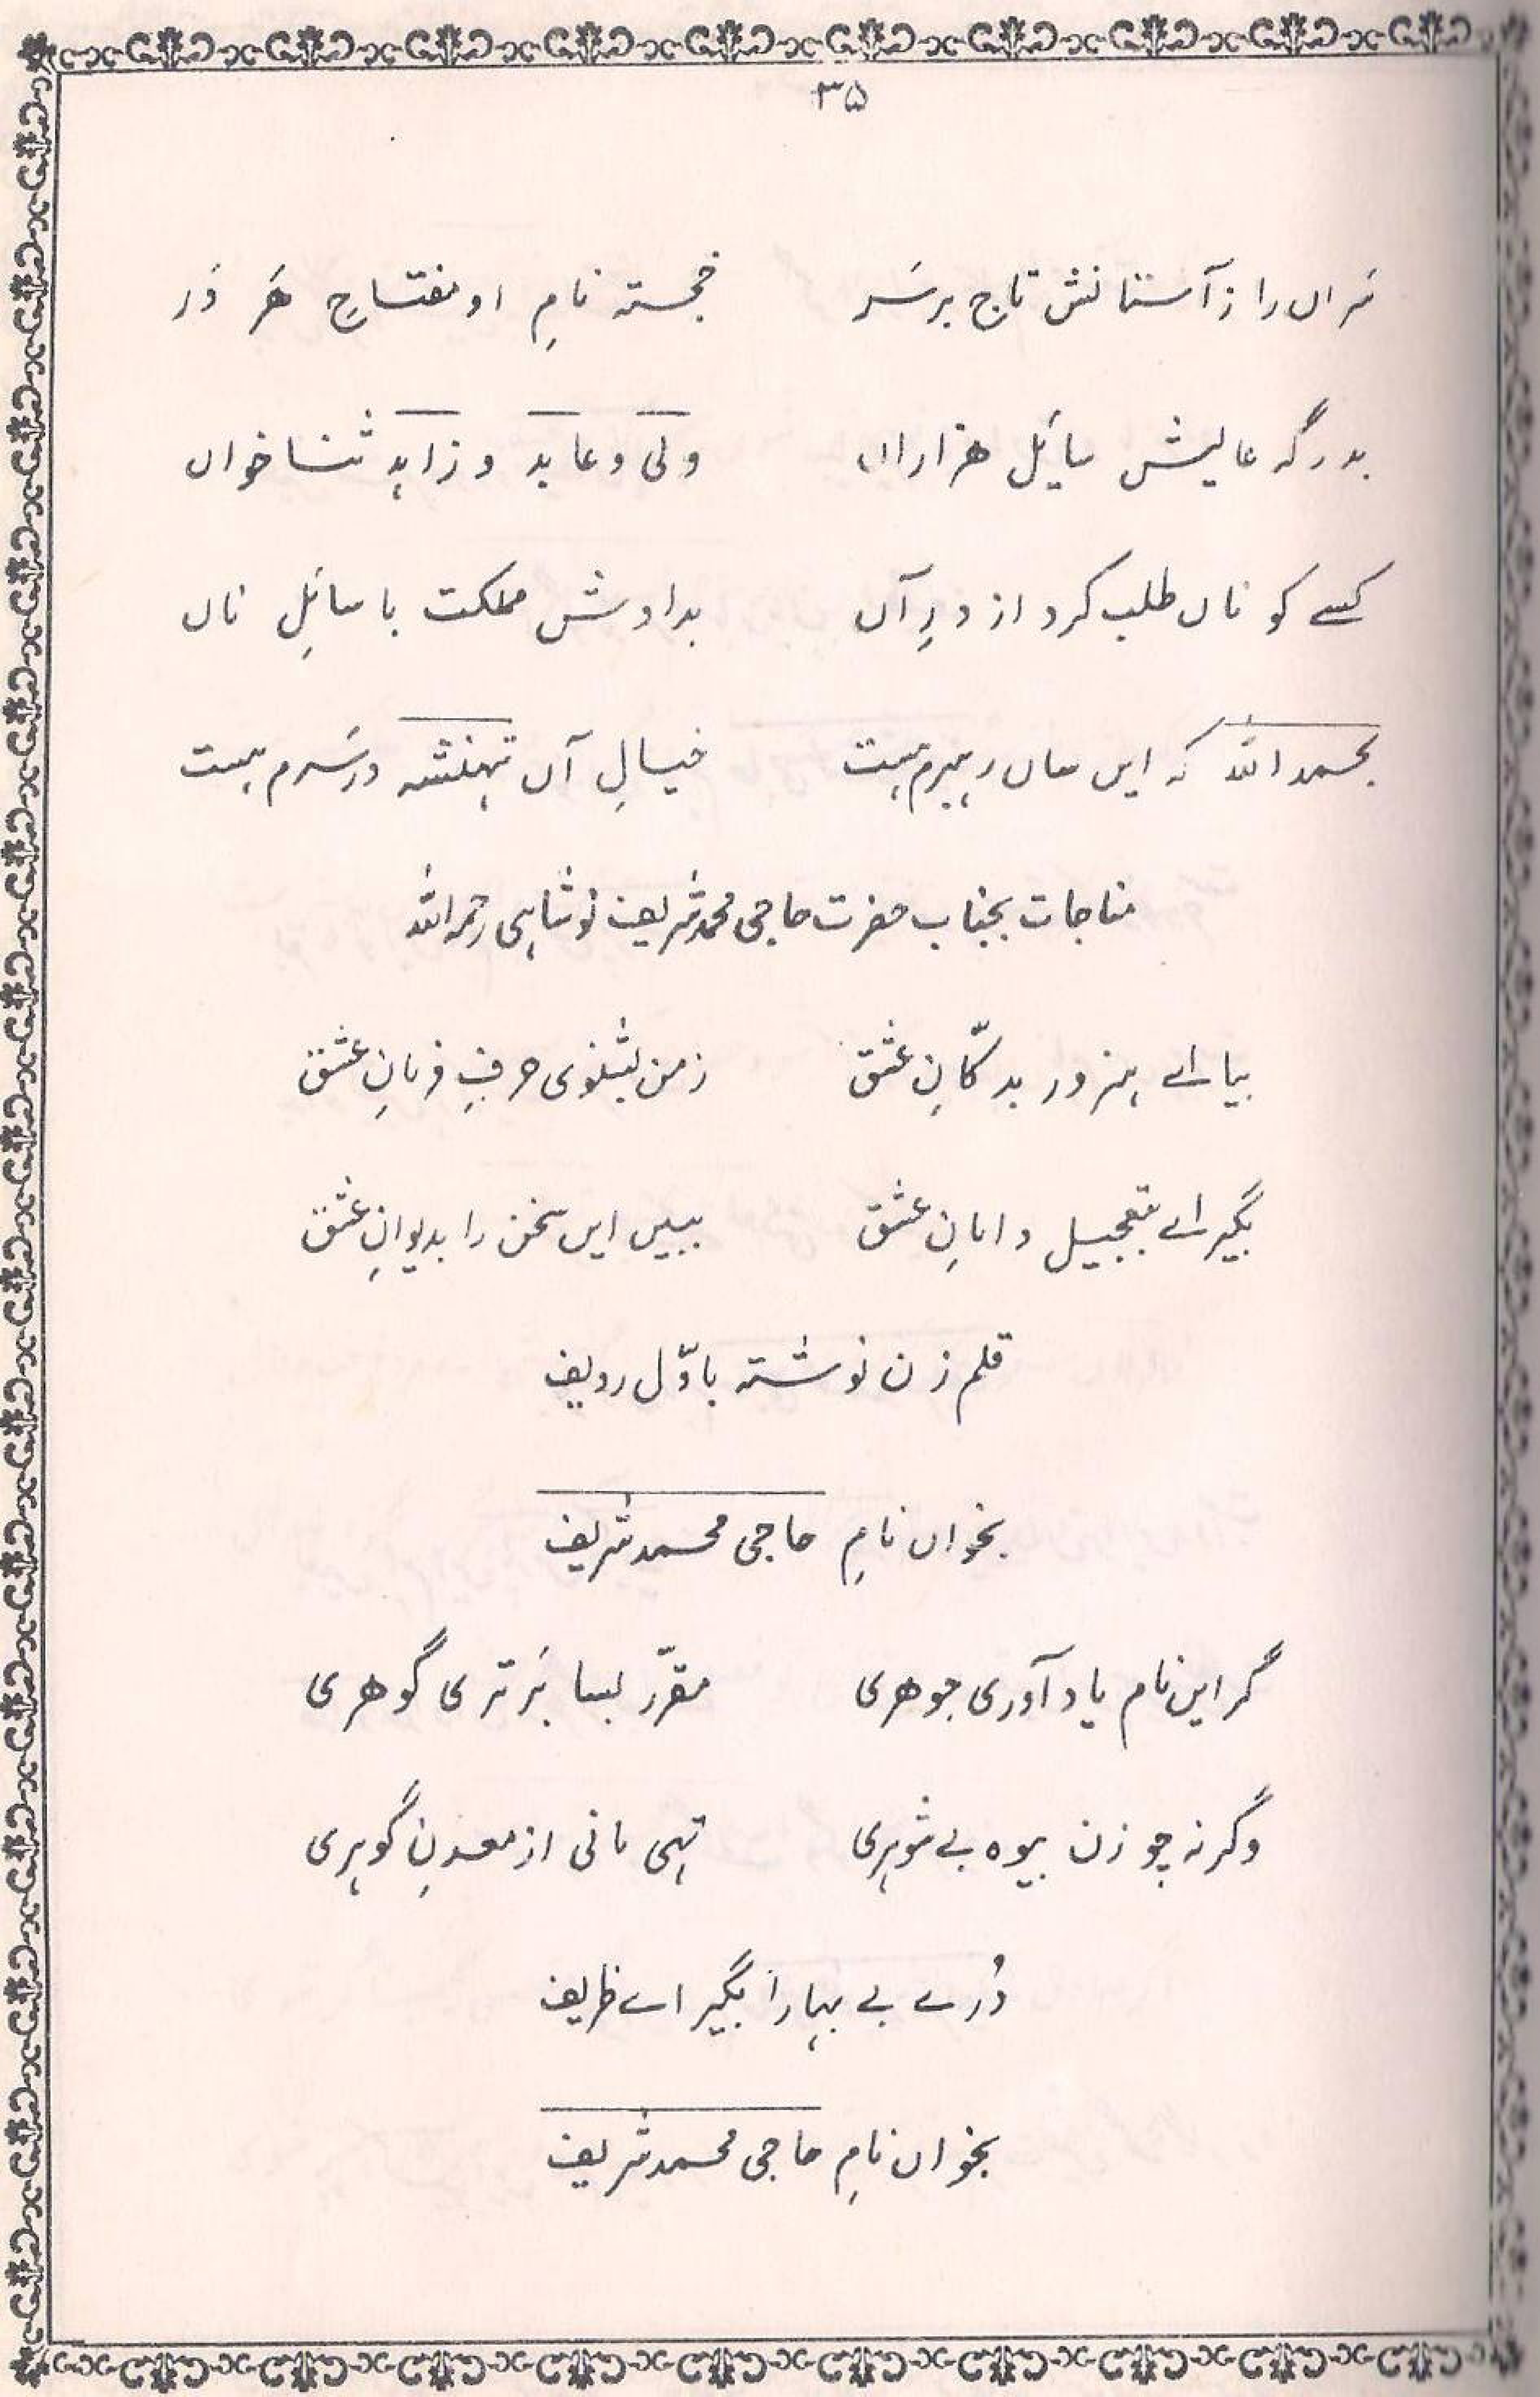 ۳۵
سَراں را ز آستانش تاج بر سَر خجستہ نامِ او مفتاحِ ھَر دَر
بدرگہ عالیش سائل ھزاراں ولی و عابد و زاہد ثنا خواں
کسے کو ناں طلب کرد از درِ آں بدادش مملکت با سائلِ ناں
بحمد اللہ کہ ایں ساں رہبرم ہست خیالِ آں شہنشہ در سَرم ہست
مناجات بجناب حضرت حاجی محمد شریف نوشاہی رحمہ اللہ
بیا اے ہنرور بدکّانِ عشق ز من بشنوی حرفِ فرمانِ عشق
بگیر اے بتعجیل دامانِ عشق ببیں ایں سخن را بدیوانِ عشق
قلم زن نوشتہ باوّل ردیف
بخواں نامِ حاجی محمد شریف
گر ایں نام یاد آوری جوھری مقرّر بسا بَرتری گوھری
وگرنہ چو زن بیوہ بے شوہری تہی مانی از معدنِ گوہری
دُرے بے بہا را بگیر اے ظریف
بخواں نامِ حاجی محمد شریف